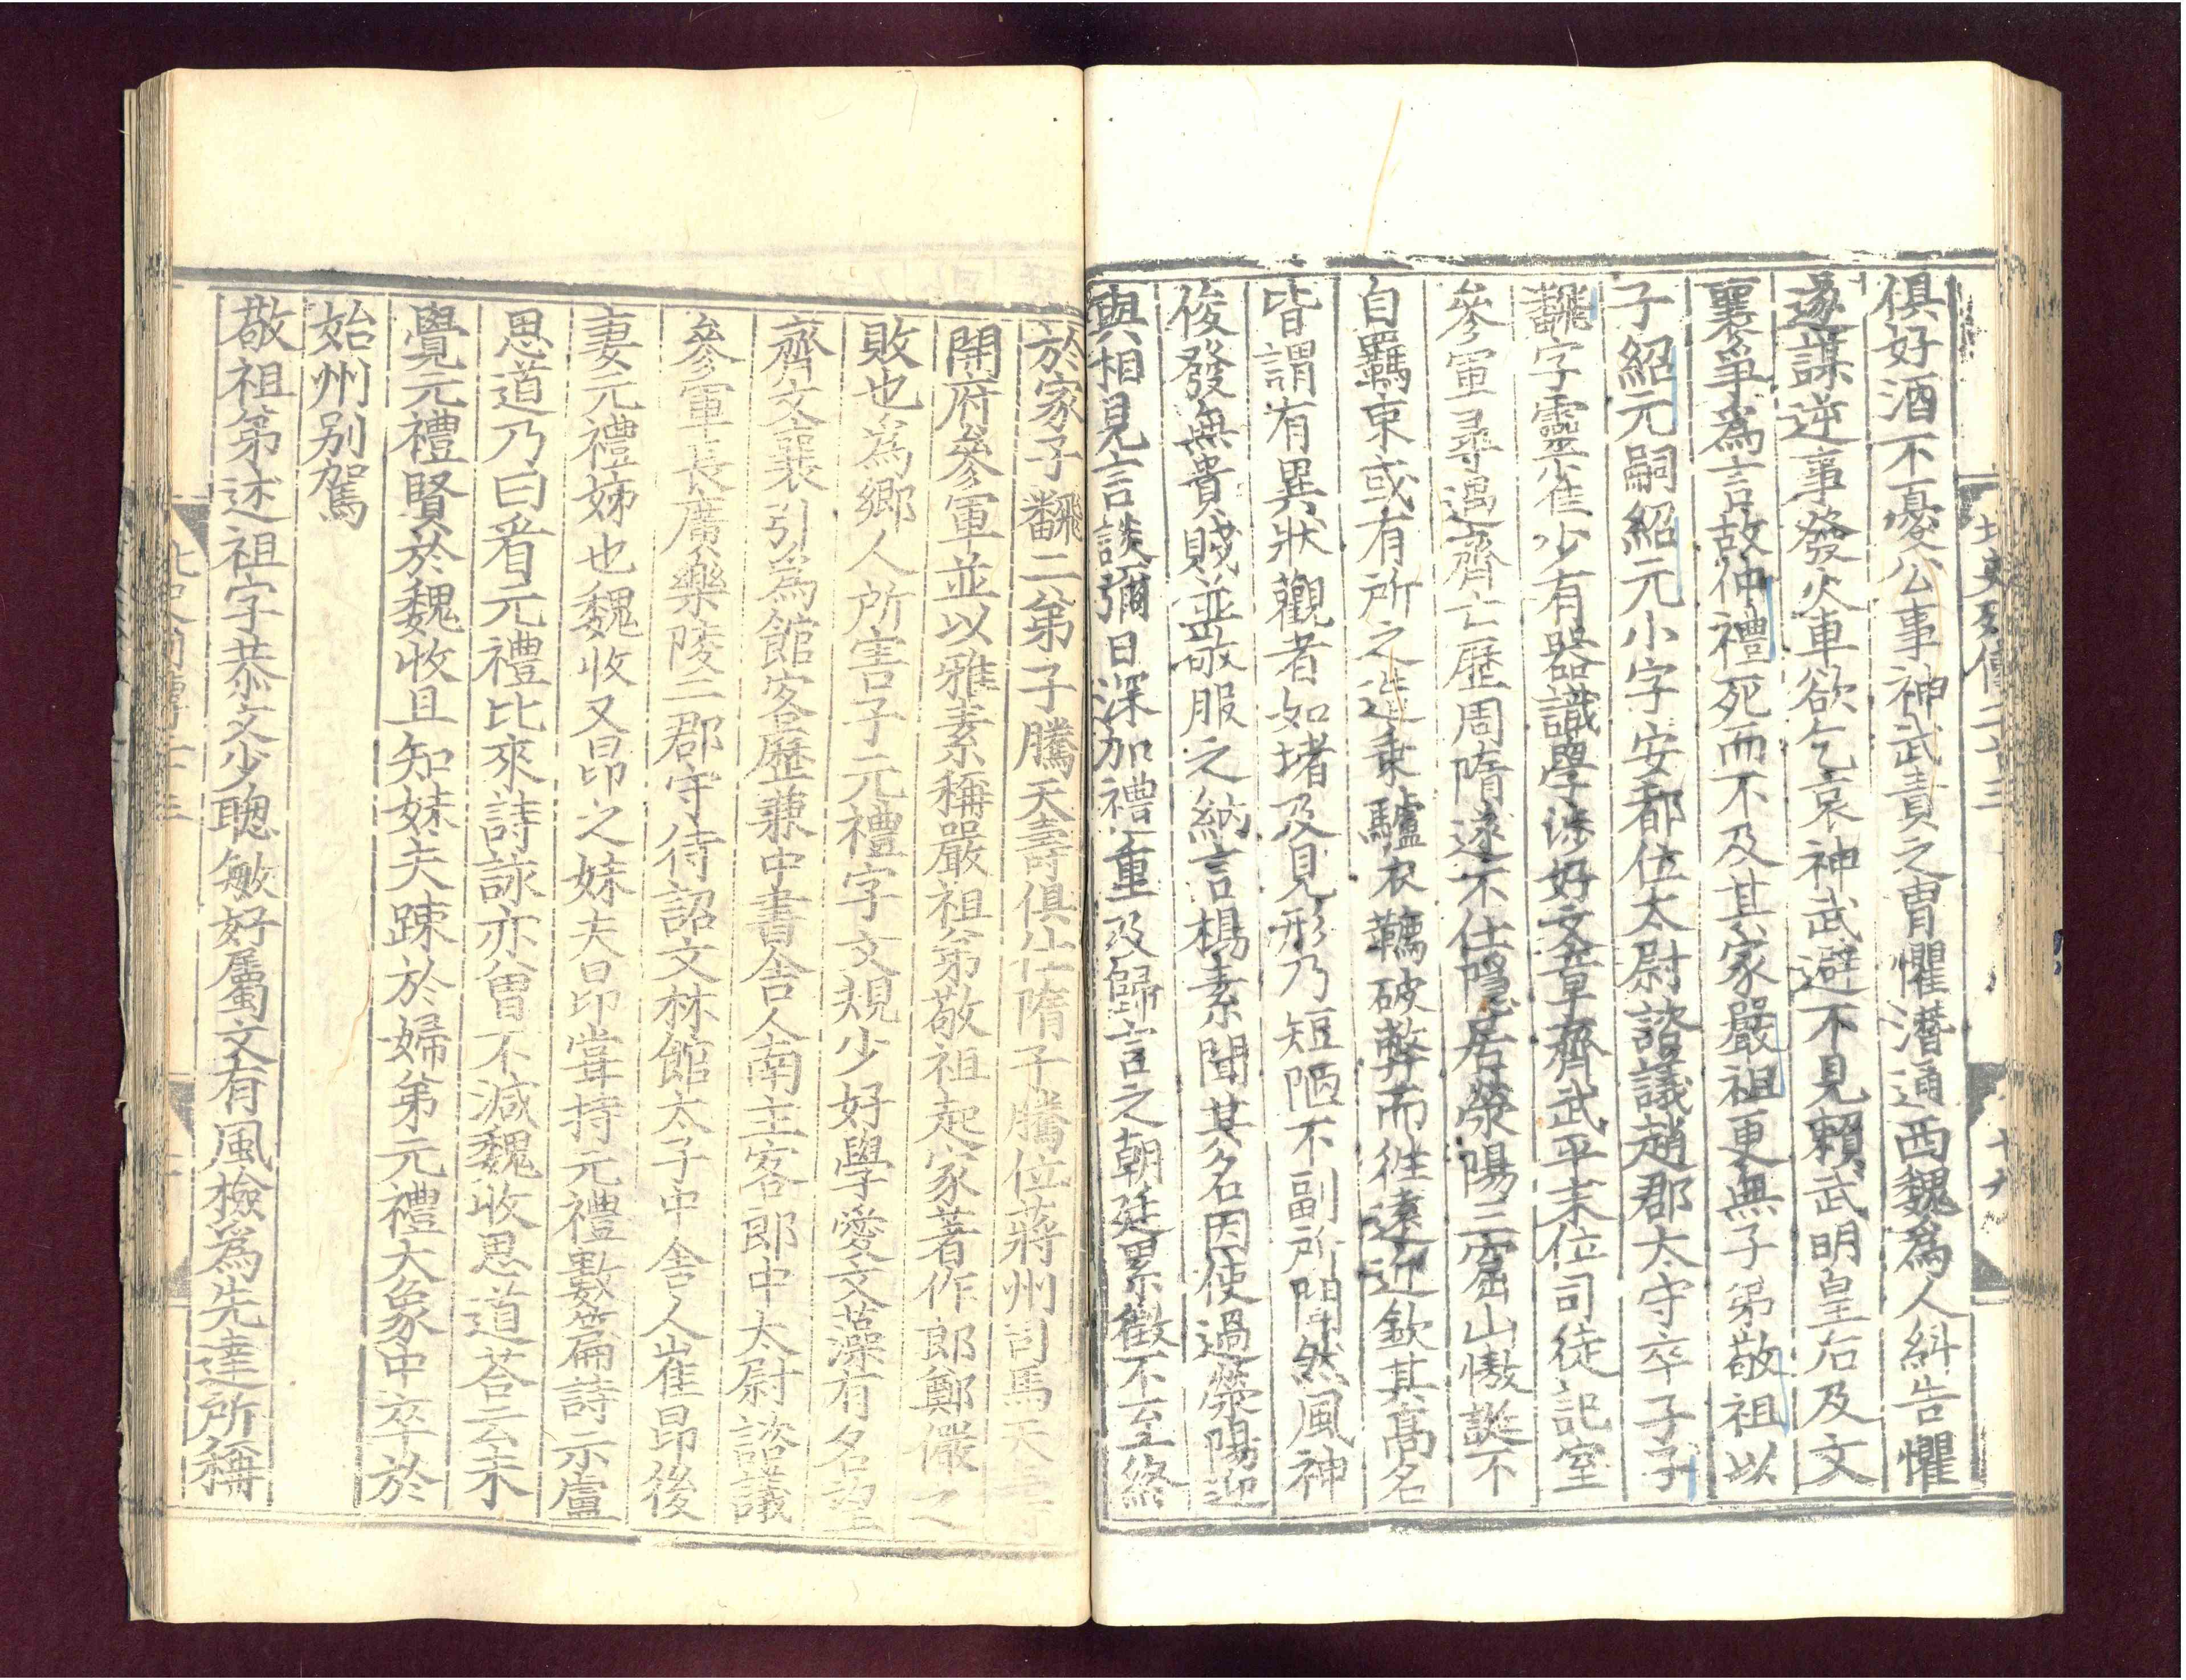 北史列傳二十三
十九
俱好酒不憂公事神武責之胄懼潛通西魏爲人糾告懼
遂謀逆事發火車欲乞哀神武避不見賴武明皇后及文
襄參爭爲言故仲禮死而不及其家嚴祖更無子弟敬祖以
子紹元嗣紹元小字安都位太尉諮議趙郡太守卒子子
翻字靈雀少有器識學涉好文章齊武平末位司徒記室
參軍尋遇齊亡歷周隋遂不仕隱居滎陽三窟山傲誕不
自羈束或有所之造乘驢衣𩌏破弊而往遠近欽其高名
皆謂有異狀觀者如堵及見形乃短陋不副所聞然風神
俊發無貴賤並敬服之納言楊素聞其名因使過滎陽迎
與相見言談彌日深加禮重及歸言之朝廷累徵不至終
於家子翻二弟子騰天壽俱仕隋子騰位蔣州司馬天壽
開府參軍並以雅素稱嚴祖弟敬祖起家著作郎鄭儼之
敗也爲鄉人所害子元禮字文規少好學愛文藻有名望
齊文襄引爲館客歷兼中書舍人南主客郎中太尉諮議
參軍長廣樂陵二郡守待詔文林館太子中舍人崔昂後
妻元禮姊也魏收又昂之妹夫昂嘗持元禮數篇詩示盧
思道乃曰看元禮比來詩詠亦曾不減魏收思道荅云未
覺元禮賢於魏收且知妹夫踈於婦弟元禮大象中卒於
始州别駕
敬祖弟述祖字恭文少聰敏好屬文有風檢爲先達所稱